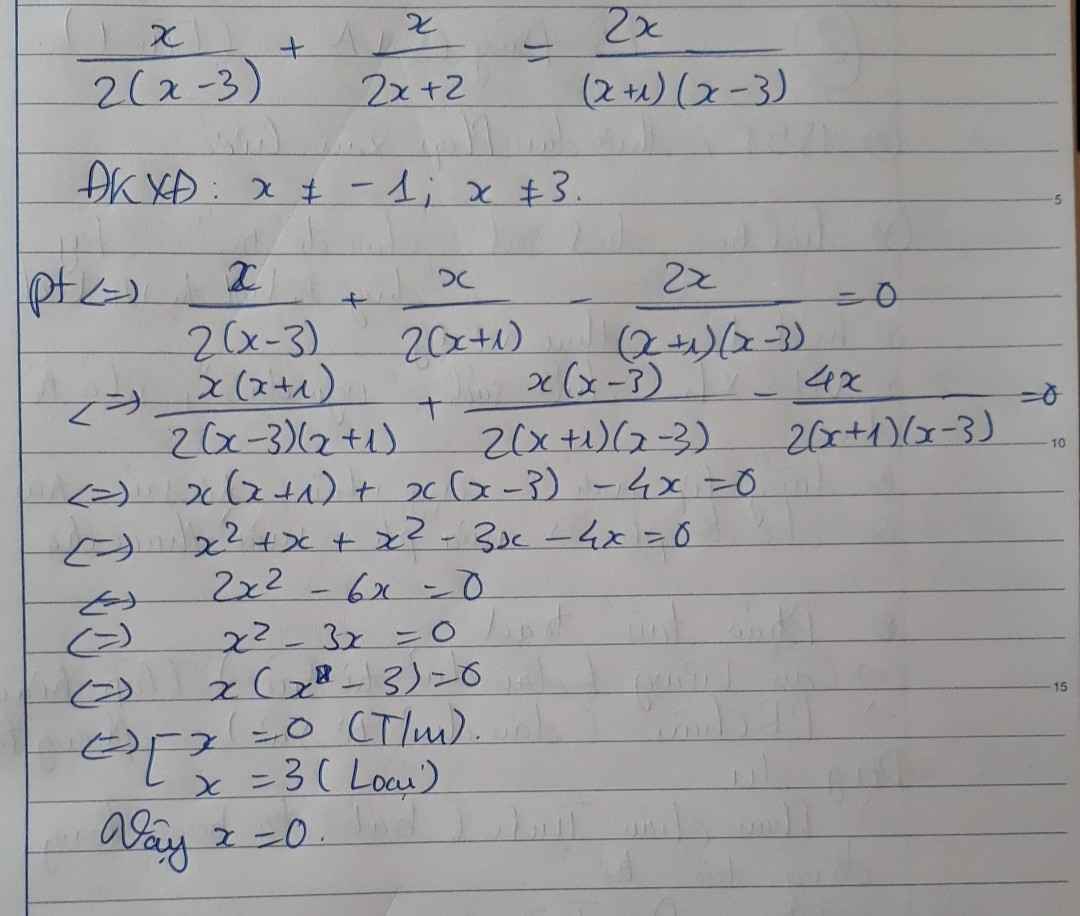 x/(2(x-3)) + x/(2x+2) = 2x/((x+1)(x-3))
ĐKXĐ: x ≠ -1; x ≠ 3.
pt <=> x/(2(x-3)) + x/(2(x+1)) - 2x/((x+1)(x-3)) = 0
<=> x(x+1)/(2(x-3)(x+1)) + x(x-3)/(2(x+1)(x-3)) - 4x/(2(x+1)(x-3)) = 0
<=> x(x+1) + x(x-3) - 4x = 0
<=> x² + x + x² - 3x - 4x = 0
<=> 2x² - 6x = 0
<=> x² - 3x = 0
<=> x(x - 3) = 0
<=> [ x = 0 (T/m).
x = 3 (Loại)
Vậy x = 0.
5
10
15